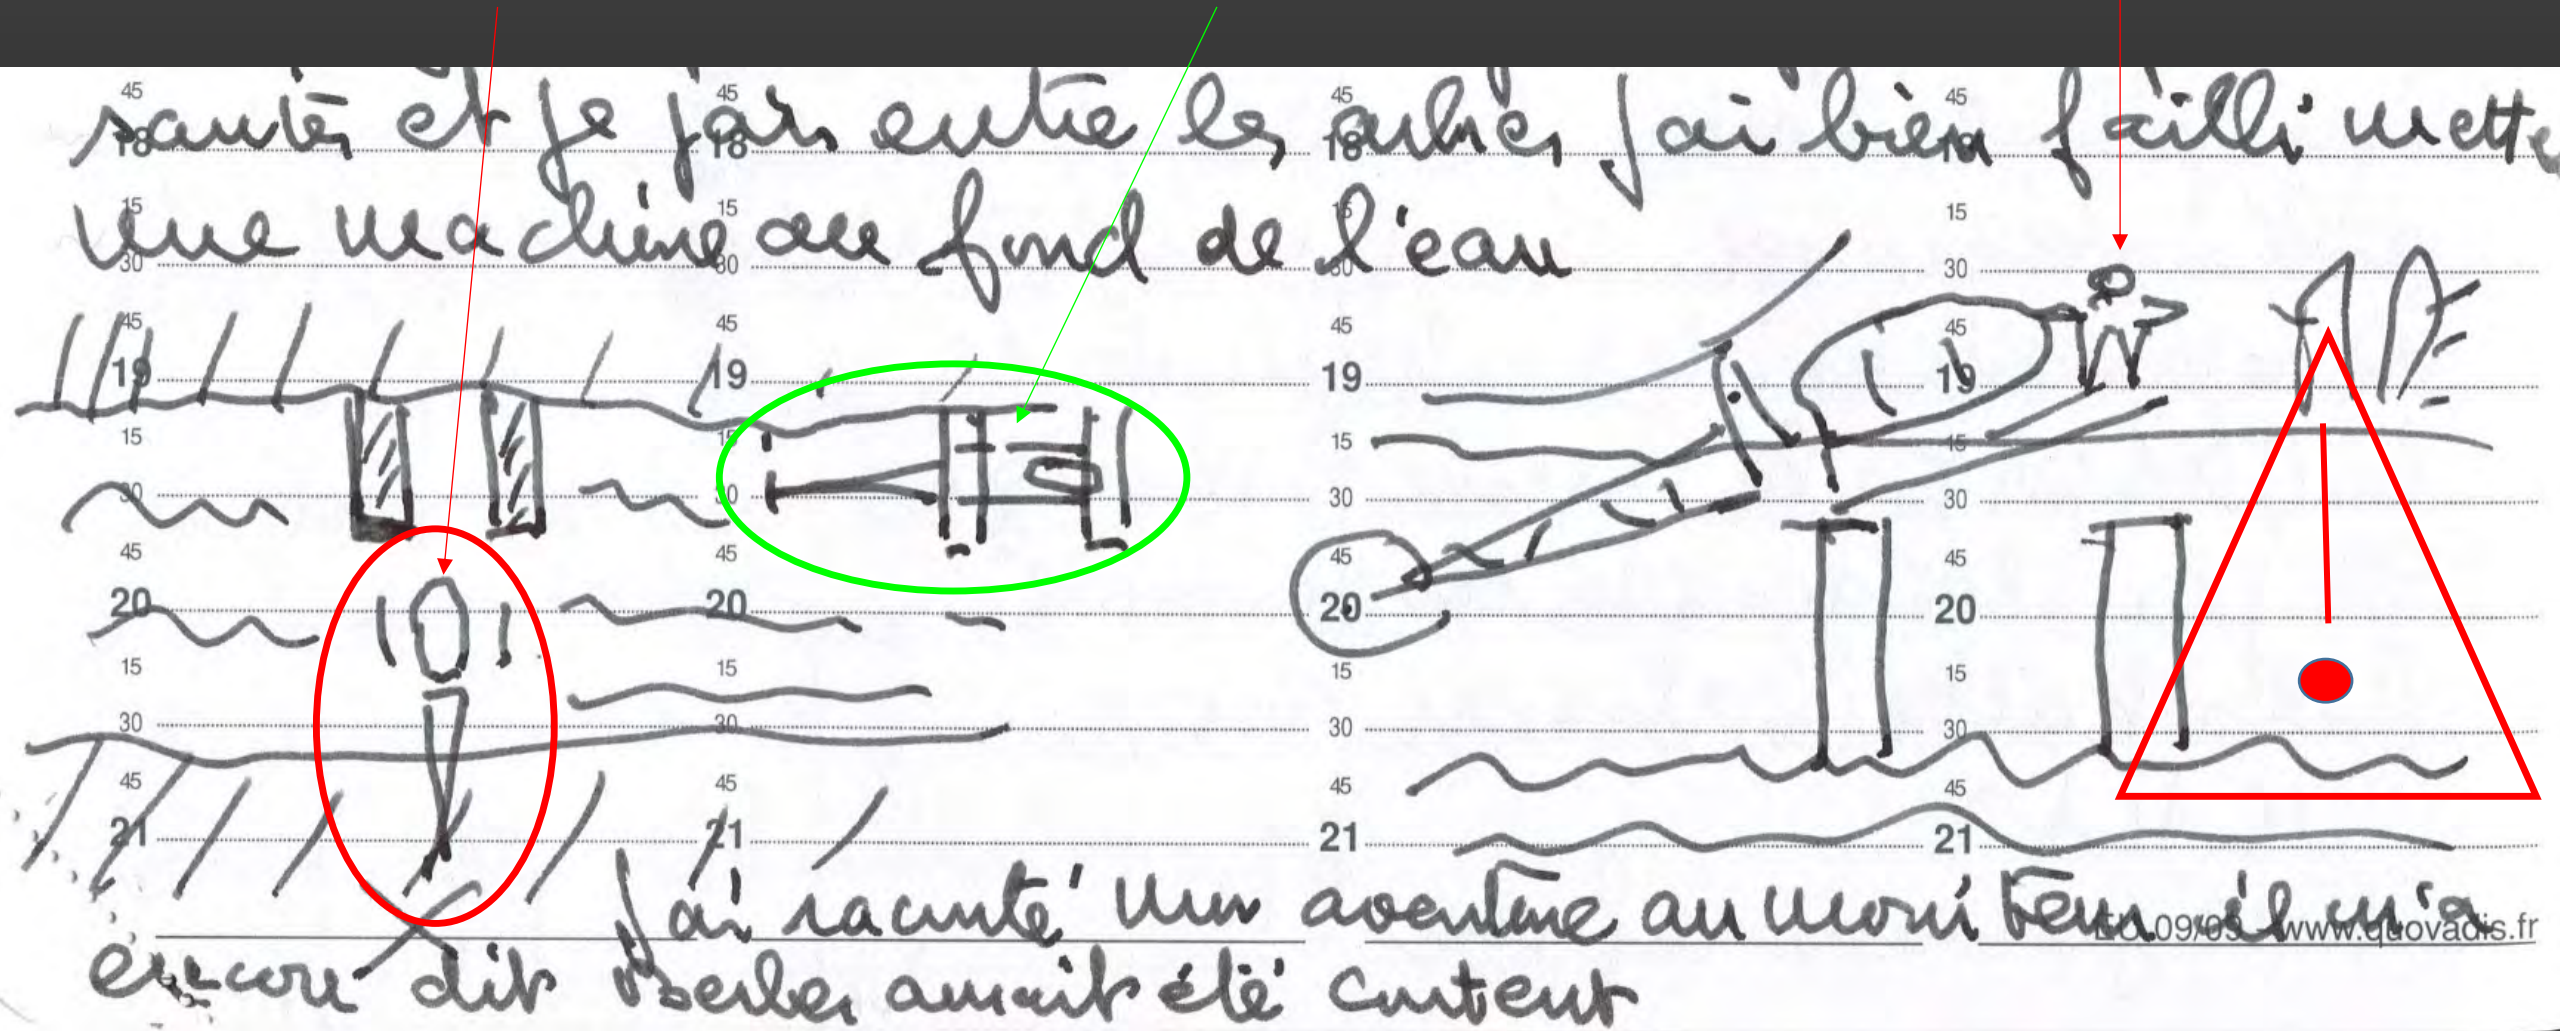 sauter et je fais entre les arbres j'ai bien failli mettre
une machine au fond de l'eau
45 45 45 45
18 18 18 18
15 15 15 15
30 30 30 30
45 45 45 45
19 19 19 19
15 15 15 15
30 30 30 30
45 45 45 45
20 20 20 20
15 15 15 15
30 30 30 30
45 45 45 45
21 21 21 21
j'ai raconté mon aventure au moniteur il m'a
EU 09/09 - www.quovadis.fr
encore dit aurait été content